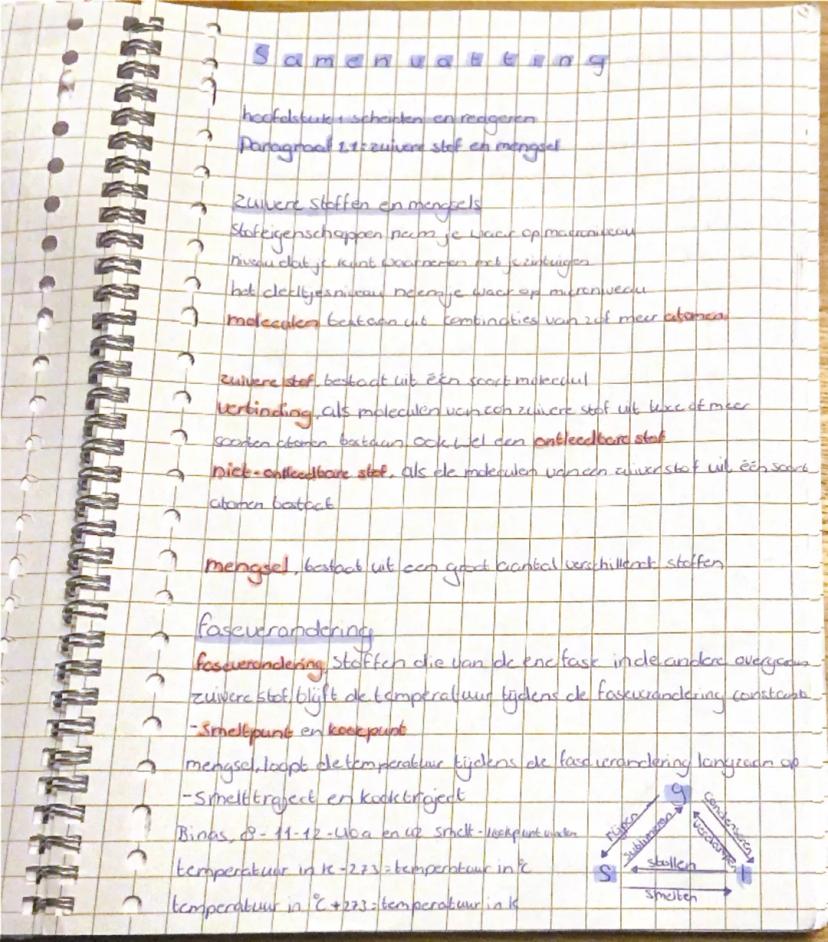 Samenvatting
hoofdstuk 1 scheiden en reageren
Paragraaf 1.1: zuivere stof en mengsel
Zuivere stoffen en mengsels
Stofeigenschappen neem je waar op macroniveau
niveau dat je kunt waarnemen met je zintuigen
het deeltjesniveau neem je waar op microniveau
moleculen bestaan uit combinaties van 2 of meer atomen
zuivere stof, bestaat uit één soort molecuul
verbinding, als moleculen van een zuivere stof uit twee of meer
soorten atomen bestaan ook wel een ontleedbare stof
niet-ontleedbare stof, als de moleculen van een zuivere stof uit één soort
atomen bestaat
mengsel, bestaat uit een groot aantal verschillende stoffen
faseverandering
faseverandering, stoffen die van de ene fase in de andere overgaan
zuivere stof, blijft de temperatuur tijdens de faseverandering constant
-smeltpunt en kookpunt
mengsel, loopt de temperatuur tijdens de faseverandering langzaam op
-smelttraject en kooktraject
Binas, 8-11-12-40a en 42 smelt-kookpunt vinden
temperatuur in K-273=temperatuur in °C
temperatuur in °C+273=temperatuur in K
g
rijpen
sublimeren
condenseren
verdampen
s
stollen
l
smelten